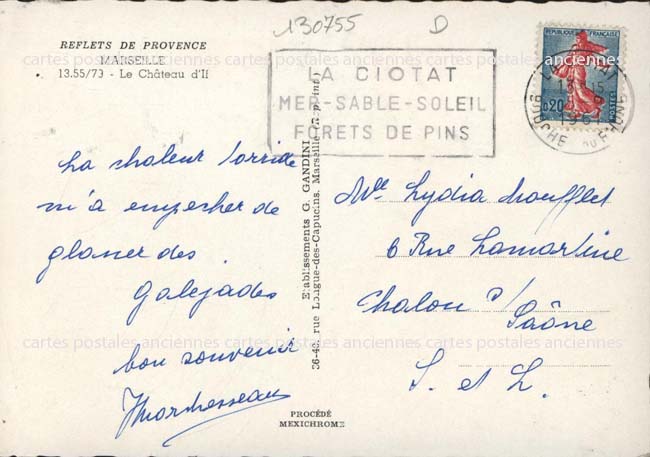 130755
D
REFLETS DE PROVENCE
MARSEILLE
13.55/73 - Le Château d'If
LA CIOTAT
MER-SABLE-SOLEIL
FORETS DE PINS
REPUBLIQUE FRANÇAISE
0,20
POSTES
LA CIOTAT
13 - 15
196
BOUCHE DU RHONE
La chaleur torride
m'a empecher de
glaner des
galejades
bon souvenir
Etablissements G. GANDINI
36-40, rue Longue-des-Capucins, Marseille
Mlle Lydia Moufflet
6 Rue Lamartine
Chalon s/
Saône
S. et L.
PROCÉDÉ
MEXICHROME
cartes postales anciennes cartes postales anciennes cartes postales anciennes
cartes postales anciennes cartes postales anciennes cartes postales anciennes